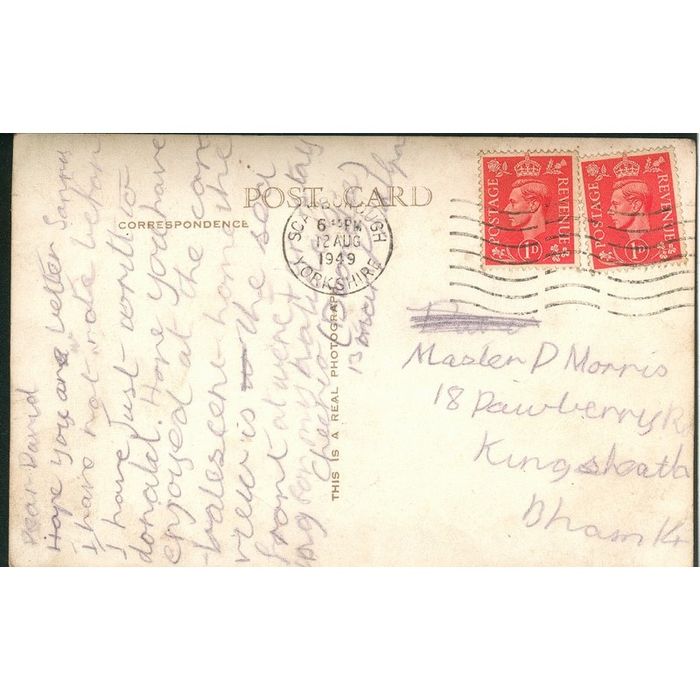 POST CARD
CORRESPONDENCE
THIS IS A REAL PHOTOGRAPH
SCARBOROUGH
6 PM
12 AUG
1949
YORKSHIRE
POSTAGE REVENUE
1D
POSTAGE REVENUE
1D
Master D Morris
18 Dawberry R
Kingsheath
Bham 14
Dear David
Hope you are better Sorry
I have not rote before
I have just writt to
donald. Hope you have
enjoyed at the con
valescent home the
view is the sea
front at
for my